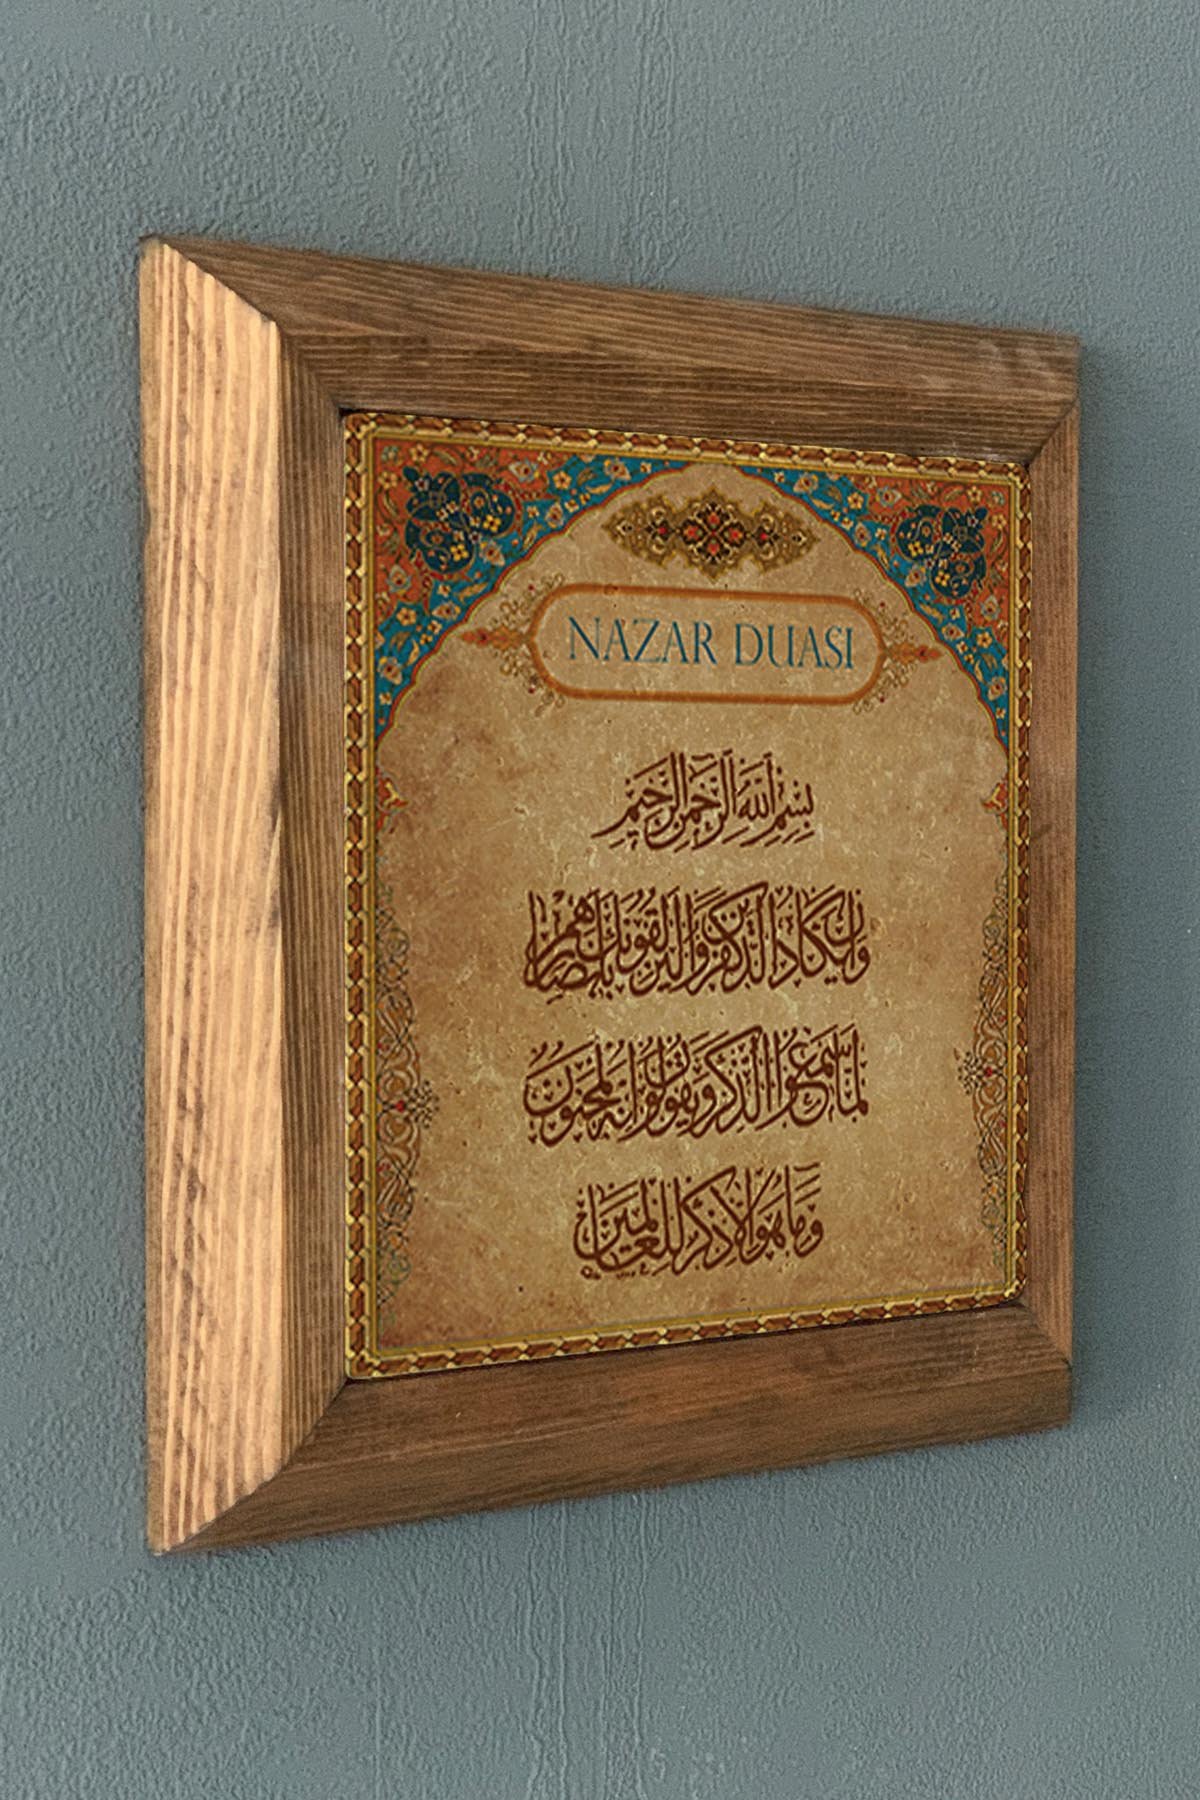 NAZAR DUASI
بِسْمِ اللهِ الرَّحْمٰنِ الرَّحِيمِ
وَاِنْ يَكَادُ الَّذِينَ كَفَرُوا لَيُزْلِقُونَكَ بِاَبْصَارِهِمْ
لَمَّا سَمِعُوا الذِّكْرَ وَيَقُولُونَ اِنَّهُ لَمَجْنُونٌ
وَمَا هُوَ اِلَّا ذِكْرٌ لِلْعَالَمِينَ